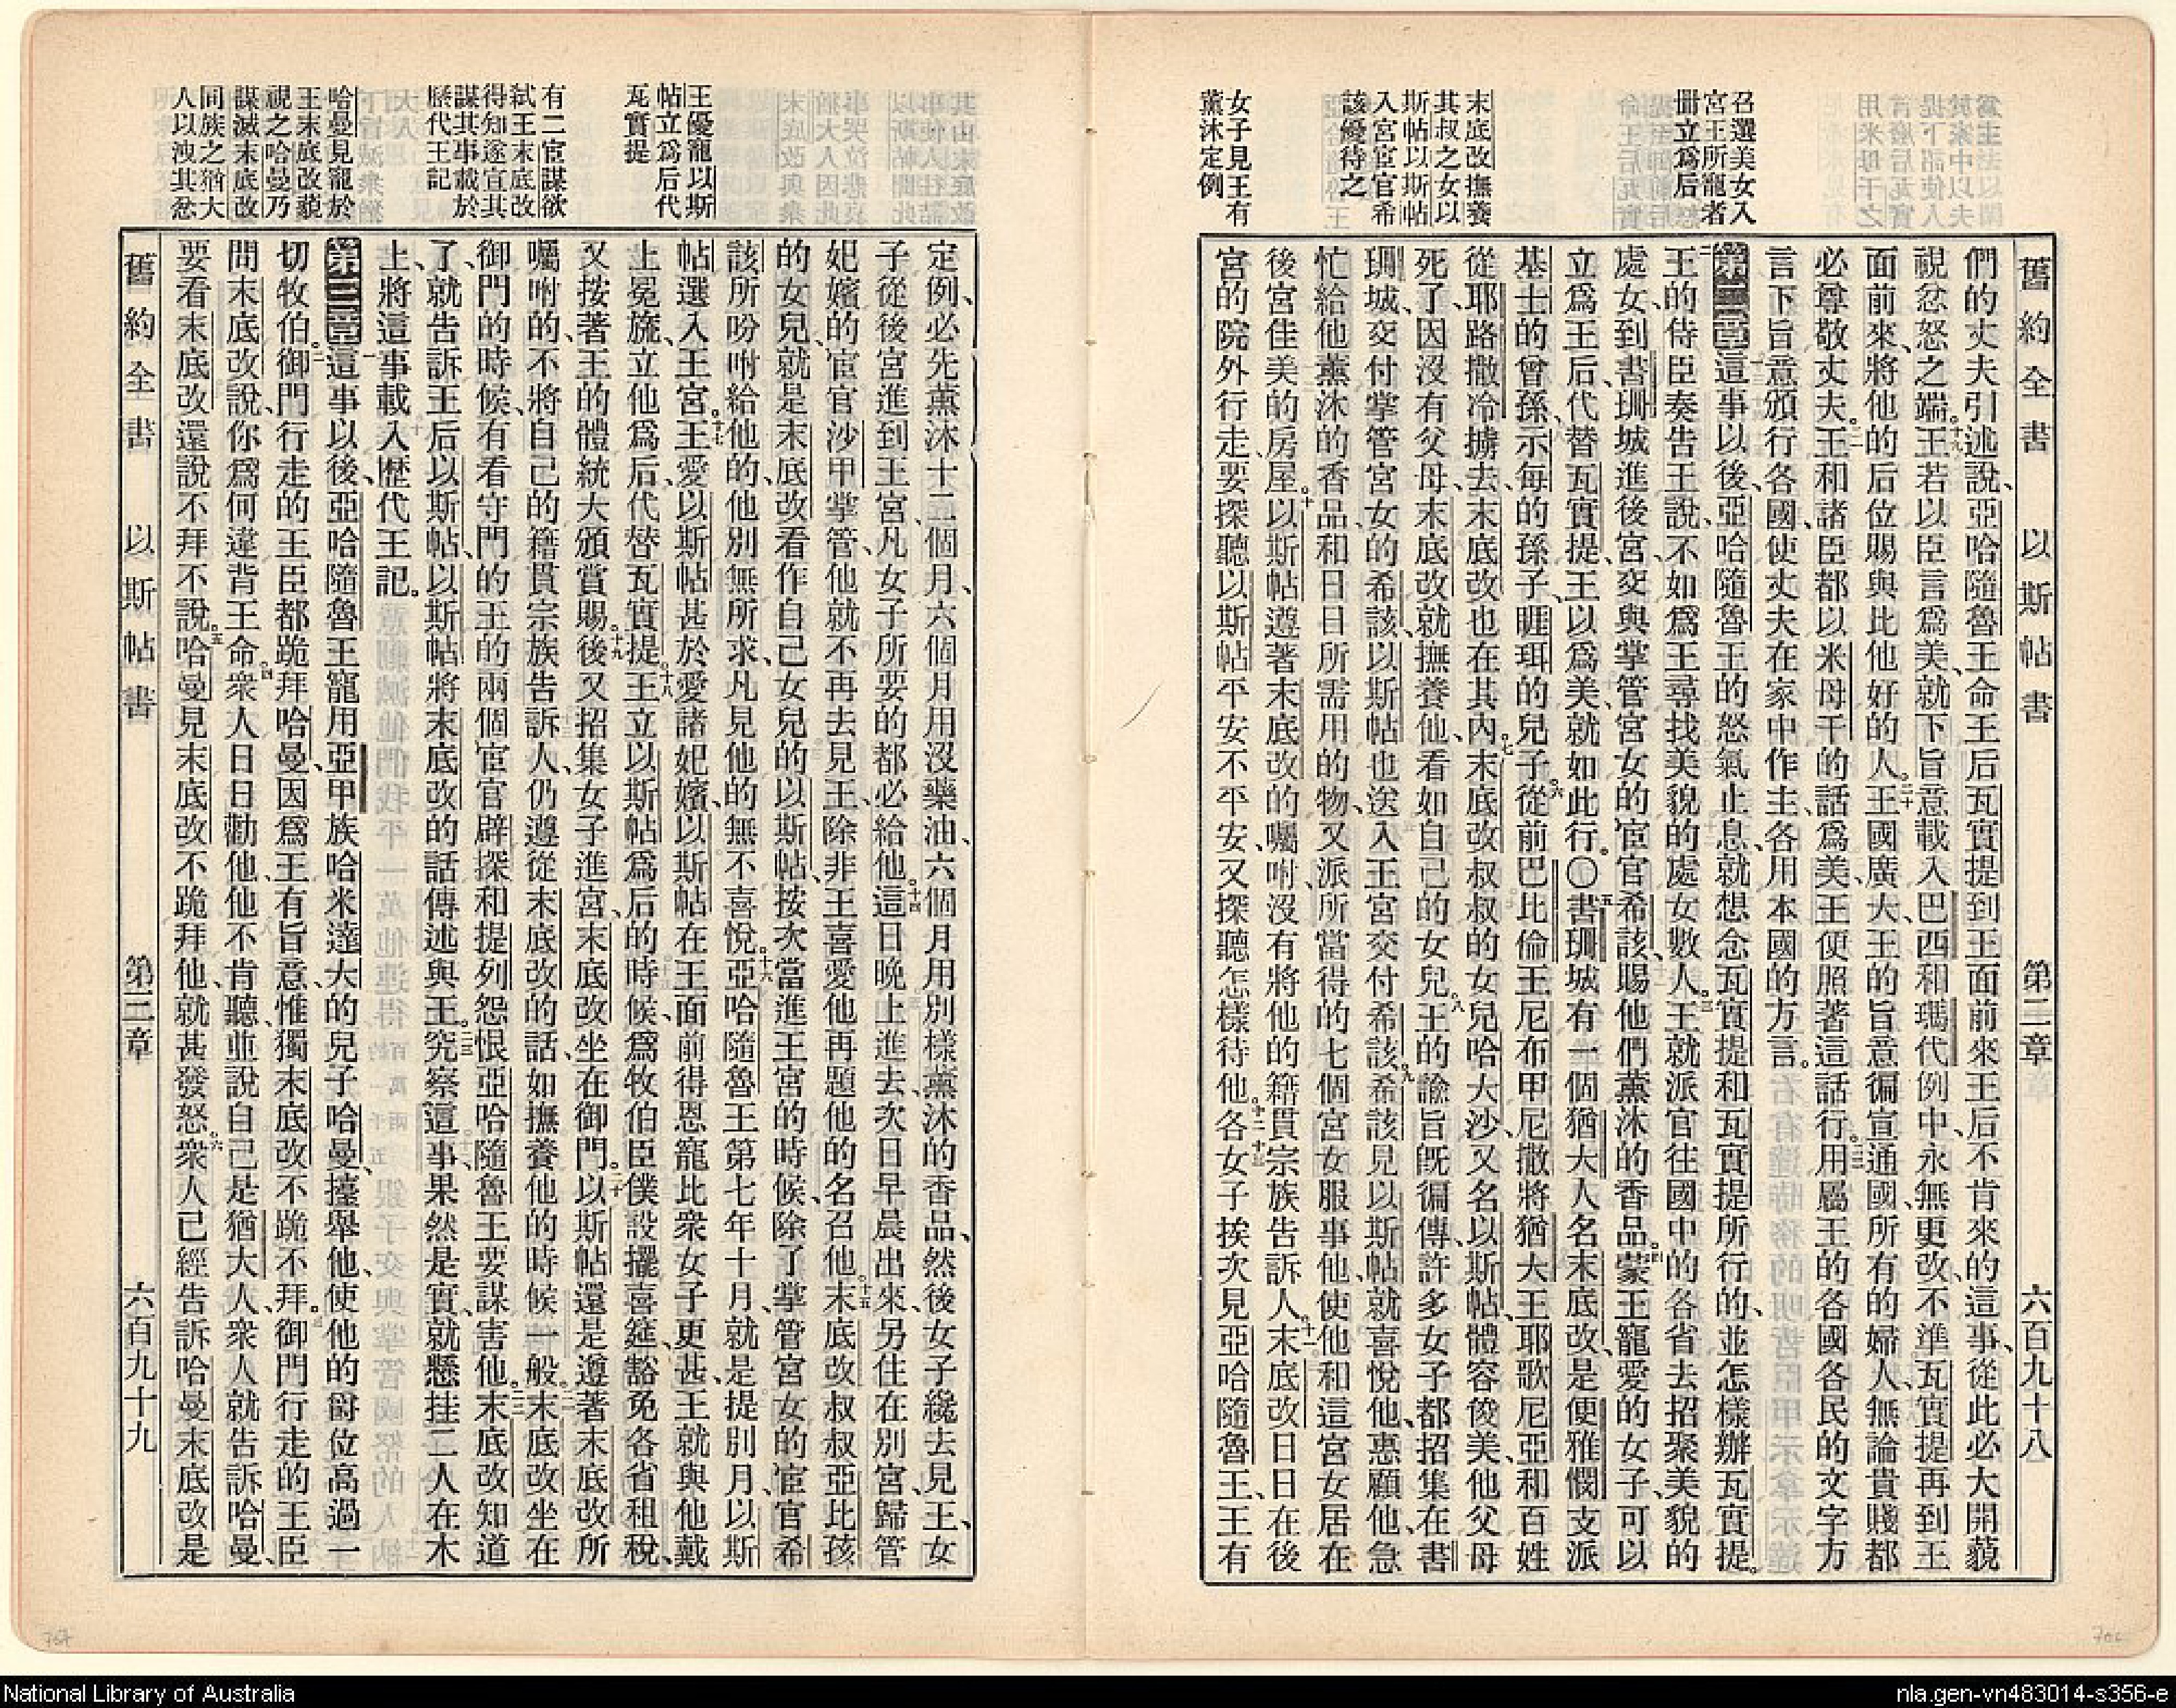 舊約全書 以斯帖書 第二章 六百九十八
召選美女入
宮王所寵者
冊立爲后
末底改撫養
其叔之女以
斯帖以斯帖
入宮宦官希
該優待之
女子見王有
薰沐定例
們的丈夫引述說、亞哈隨魯王命王后瓦實提到王面前來王后不肯來的這事、從此必大開藐
視忿怒之端。十九王若以臣言爲美、就下旨意載入巴西和瑪代例中、永無更改、不準瓦實提再到王
面前來、將他的后位賜與比他好的人。二十王國廣大、王的旨意徧宣通國、所有的婦人、無論貴賤都
必尊敬丈夫。二一王和諸臣都以米母干的話爲美、王便照著這話行。二二用屬王的各國各民的文字方
言下旨意頒行各國、使丈夫在家中作主、各用本國的方言。
第二章一這事以後、亞哈隨魯王的怒氣止息、就想念瓦實提和瓦實提所行的、並怎樣辦瓦實提。
二王的侍臣奏告王說、不如爲王尋找美貌的處女數人。三王就派官往國中的各省去招聚美貌的
處女、到書珊城進後宮、交與掌管宮女的宦官希該、賜他們薰沐的香品。四蒙王寵愛的女子、可以
立爲王后、代替瓦實提、王以爲美、就如此行。〇五書珊城有一個猶大人名末底改、是便雅憫支派
基士的曾孫、示每的孫子、睚珥的兒子。六從前巴比倫王尼布甲尼撒將猶大王耶歌尼亞和百姓
從耶路撒冷擄去、末底改也在其內。七末底改叔叔的女兒哈大沙、又名以斯帖、體容俊美、他父母
死了、因沒有父母、末底改就撫養他、看如自己的女兒。八王的諭旨旣徧傳、許多女子都招集在書
珊城、交付掌管宮女的希該、以斯帖也送入王宮交付希該。九希該見以斯帖就喜悅他、惠顧他、急
忙給他薰沐的香品、和日日所需用的物、又派所當得的七個宮女服事他、使他和這宮女居在
後宮佳美的房屋。十以斯帖遵著末底改的囑咐、沒有將他的籍貫宗族告訴人。十一末底改日日在後
宮的院外行走、要探聽以斯帖平安不平安、又探聽怎樣待他。十二各女子挨次見亞哈隨魯王、王有
王優寵以斯
帖立爲后代
瓦實提
有二宦謀欲
弑王末底改
得知遂宣其
謀其事載於
歷代王記
哈曼見寵於
王末底改藐
視之哈曼乃
謀滅末底改
同族之猶大
人以洩其忿
定例、必先薰沐十二個月、六個月用沒藥油、六個月用別樣薰沐的香品、然後女子纔去見王、女
子從後宮進到王宮、凡女子所要的都必給他。十四這日晚上進去、次日早晨出來、另住在別宮、歸管
妃嬪的宦官沙甲掌管、他就不再去見王、除非王喜愛他再題他的名召他。十五末底改叔叔亞比孩
的女兒、就是末底改看作自己女兒的以斯帖、按次當進王宮的時候、除了掌管宮女的宦官希
該所吩咐給他的、他別無所求、凡見他的無不喜悅。十六亞哈隨魯王第七年十月、就是提別月、以斯
帖選入王宮。十七王愛以斯帖甚於愛諸妃嬪、以斯帖在王面前得恩寵此衆女子更甚、王就與他戴
上冕旒、立他爲后、代替瓦實提。十八王立以斯帖爲后的時候、爲牧伯臣僕設擺喜筵、豁免各省租稅、
又按著王的體統大頒賞賜。十九後又招集女子進宮、末底改坐在御門。二十以斯帖還是遵著末底改所
囑咐的、不將自己的籍貫宗族告訴人、仍遵從末底改的話、如撫養他的時候一般。二一末底改坐在
御門的時候、有看守門的王的兩個宦官、辟探和提列怨恨亞哈隨魯王要謀害他。二二末底改知道
了、就告訴王后以斯帖、以斯帖將末底改的話傳述與王。二三究察這事、果然是實、就懸挂二人在木
上、將這事載入歷代王記。
第三章一這事以後、亞哈隨魯王寵用亞甲族哈米達大的兒子哈曼、擡舉他、使他的爵位高過一
切牧伯。二御門行走的王臣都跪拜哈曼、因爲王有旨意、惟獨末底改不跪不拜。三御門行走的王臣
問末底改說、你爲何違背王命。四衆人日日勸他、他不肯聽、並說自己是猶大人、衆人就告訴哈曼、
要看末底改還說不拜不說。五哈曼見末底改不跪拜他、就甚發怒。六衆人已經告訴哈曼末底改是
舊約全書 以斯帖書 第三章 六百九十九
National Library of Australia
nla.gen-vn483014-s356-e